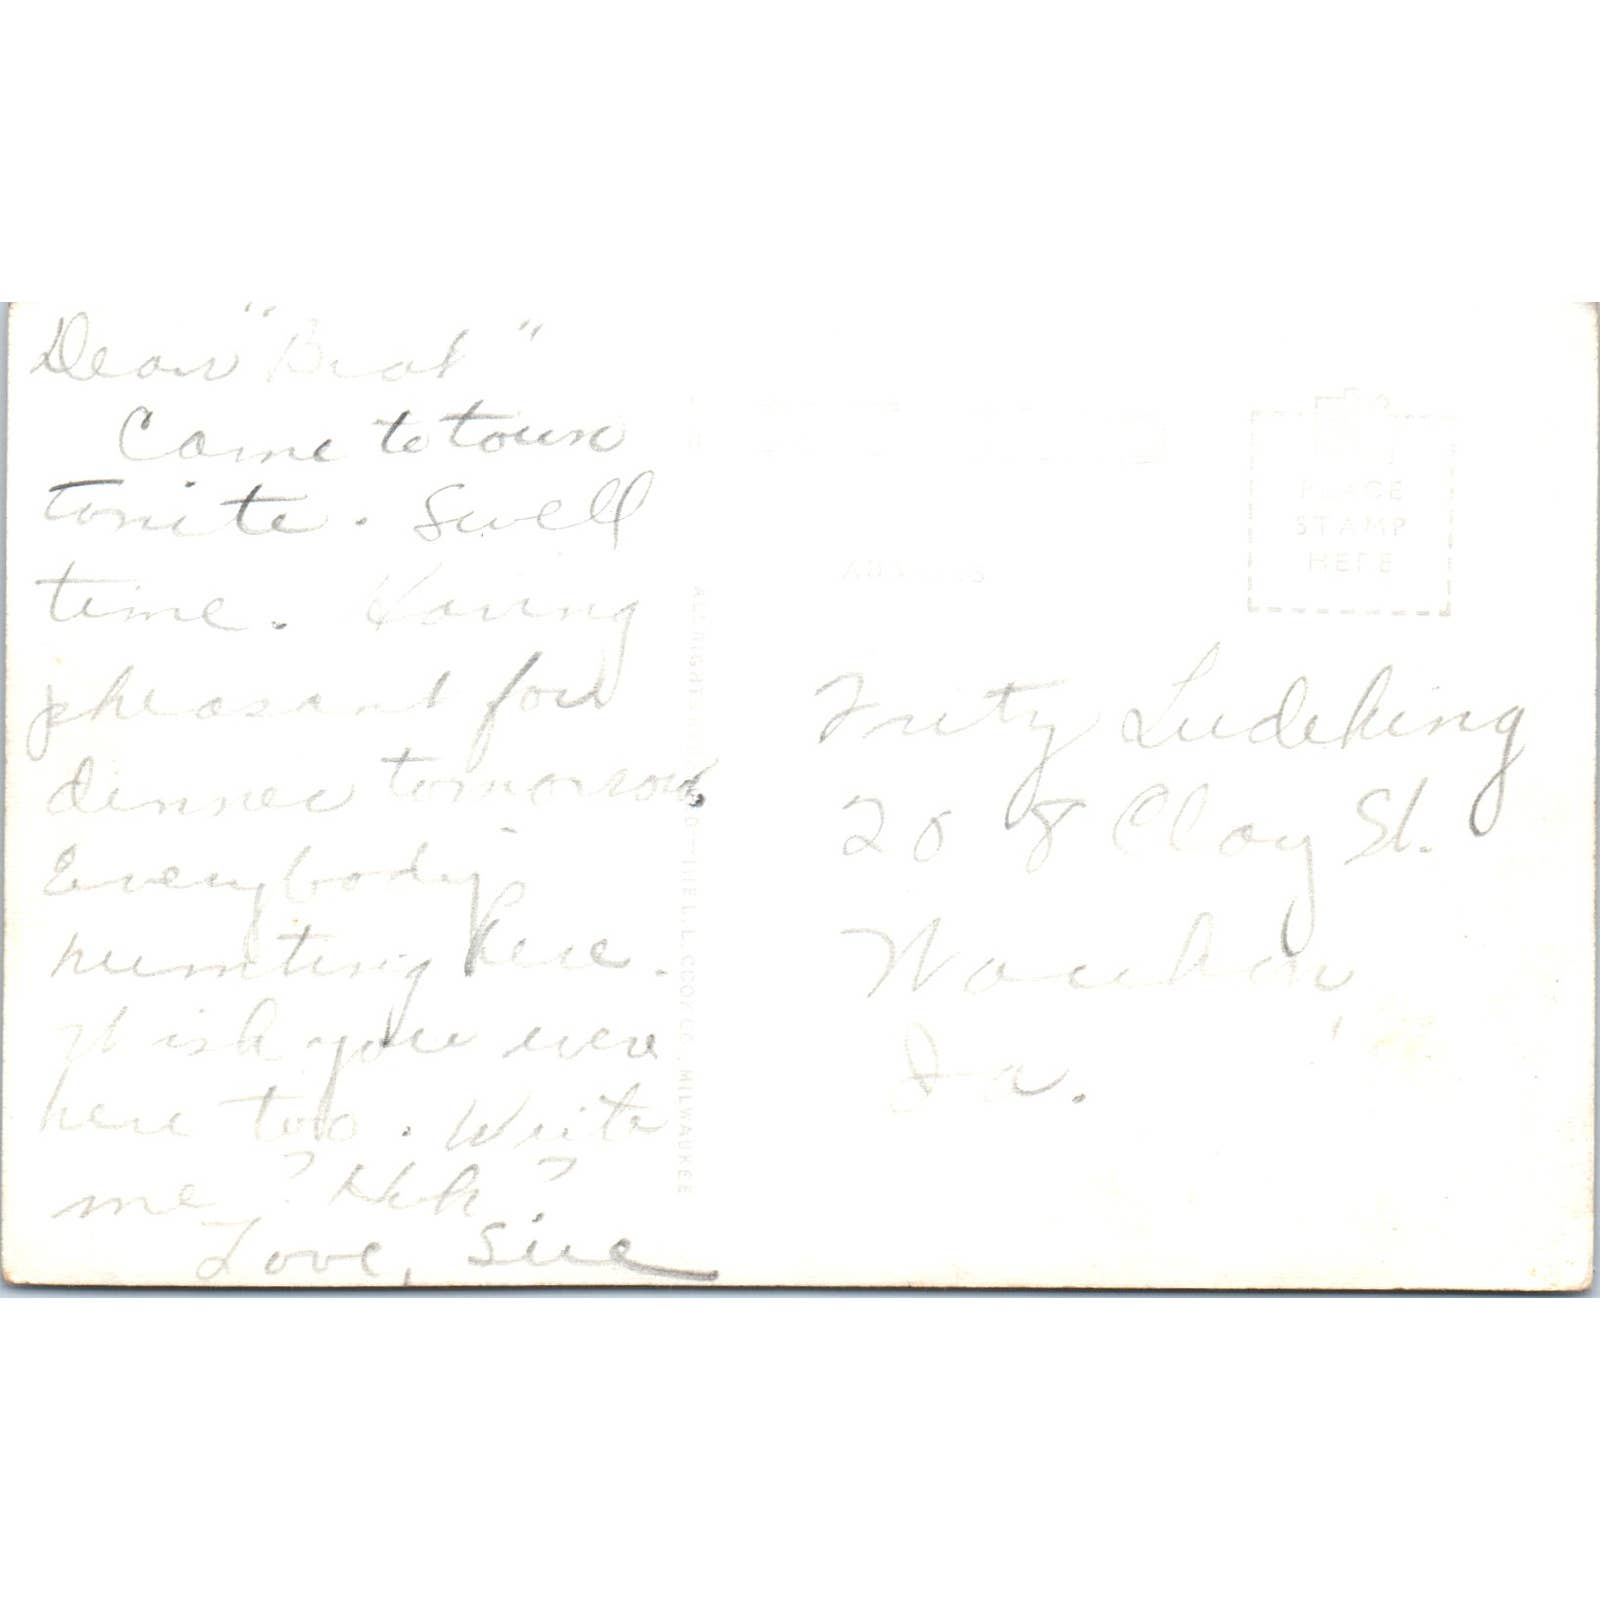 Dear "Brat"
Came to town
tonite. Swell
time. Having
pheasant for
dinner tomorrow.
Everybody's
hunting here.
Wish you were
here too. Write
me? Huh?
Love, Sue
PLACE
STAMP
HERE
ADDRESS
Fritz Ludeking
208 Clay St.
Waukon
Ia.
ALL RIGHTS THE L.L. COOK CO., MILWAUKEE